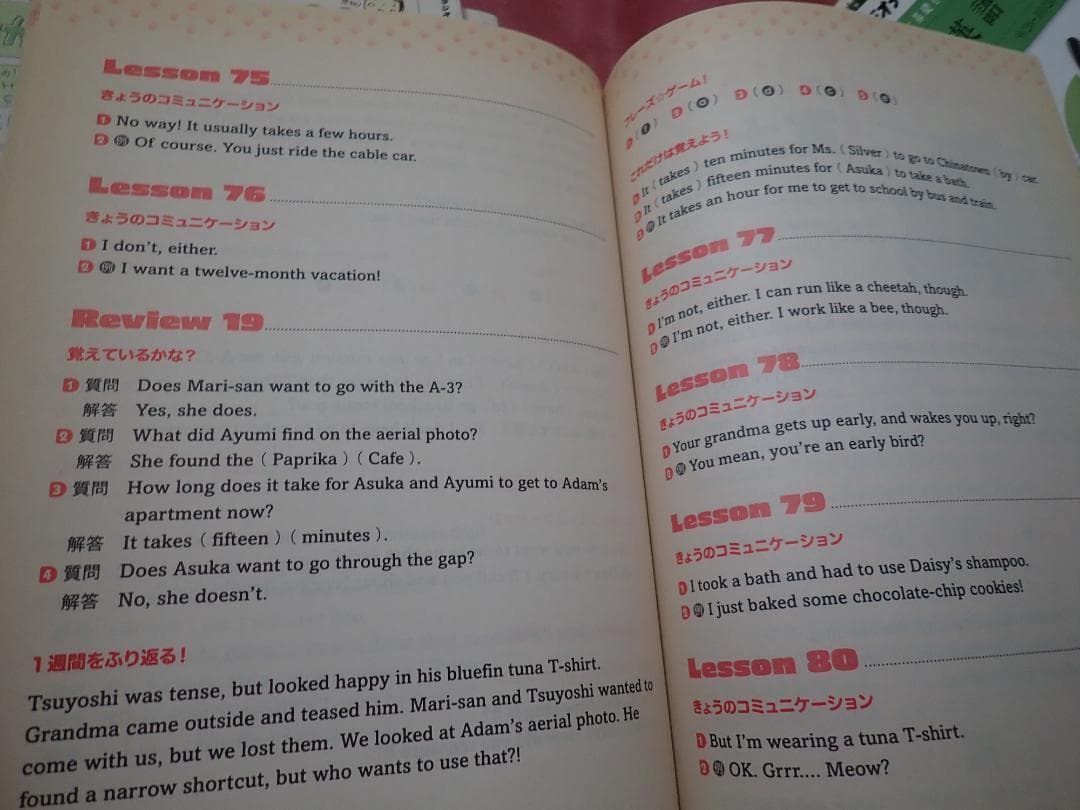 Lesson 75
きょうのコミュニケーション
1 No way! It usually takes a few hours.
2 例 Of course. You just ride the cable car.
Lesson 76
きょうのコミュニケーション
1 I don't, either.
2 例 I want a twelve-month vacation!
Review 19
覚えているかな?
1 質問 Does Mari-san want to go with the A-3?
解答 Yes, she does.
2 質問 What did Ayumi find on the aerial photo?
解答 She found the ( Paprika ) ( Cafe ).
3 質問 How long does it take for Asuka and Ayumi to get to Adam's
apartment now?
解答 It takes ( fifteen ) ( minutes ).
4 質問 Does Asuka want to go through the gap?
解答 No, she doesn't.
1週間をふり返る!
Tsuyoshi was tense, but looked happy in his bluefin tuna T-shirt.
Grandma came outside and teased him. Mari-san and Tsuyoshi wanted to
come with us, but we lost them. We looked at Adam's aerial photo. He
found a narrow shortcut, but who wants to use that?!
フレーズ☆ゲーム!
これだけは覚えよう!
It ( takes ) ten minutes for Ms. ( Silver ) to go to Chinatown ( by ) car.
It ( takes ) fifteen minutes for ( Asuka ) to take a bath.
例 It takes an hour for me to get to school by bus and train.
Lesson 77
きょうのコミュニケーション
1 I'm not, either. I can run like a cheetah, though.
2 例 I'm not, either. I work like a bee, though.
Lesson 78
きょうのコミュニケーション
1 Your grandma gets up early, and wakes you up, right?
2 例 You mean, you're an early bird?
Lesson 79
きょうのコミュニケーション
1 I took a bath and had to use Daisy's shampoo.
2 例 I just baked some chocolate-chip cookies!
Lesson 80
きょうのコミュニケーション
1 But I'm wearing a tuna T-shirt.
2 例 OK. Grrr.... Meow?